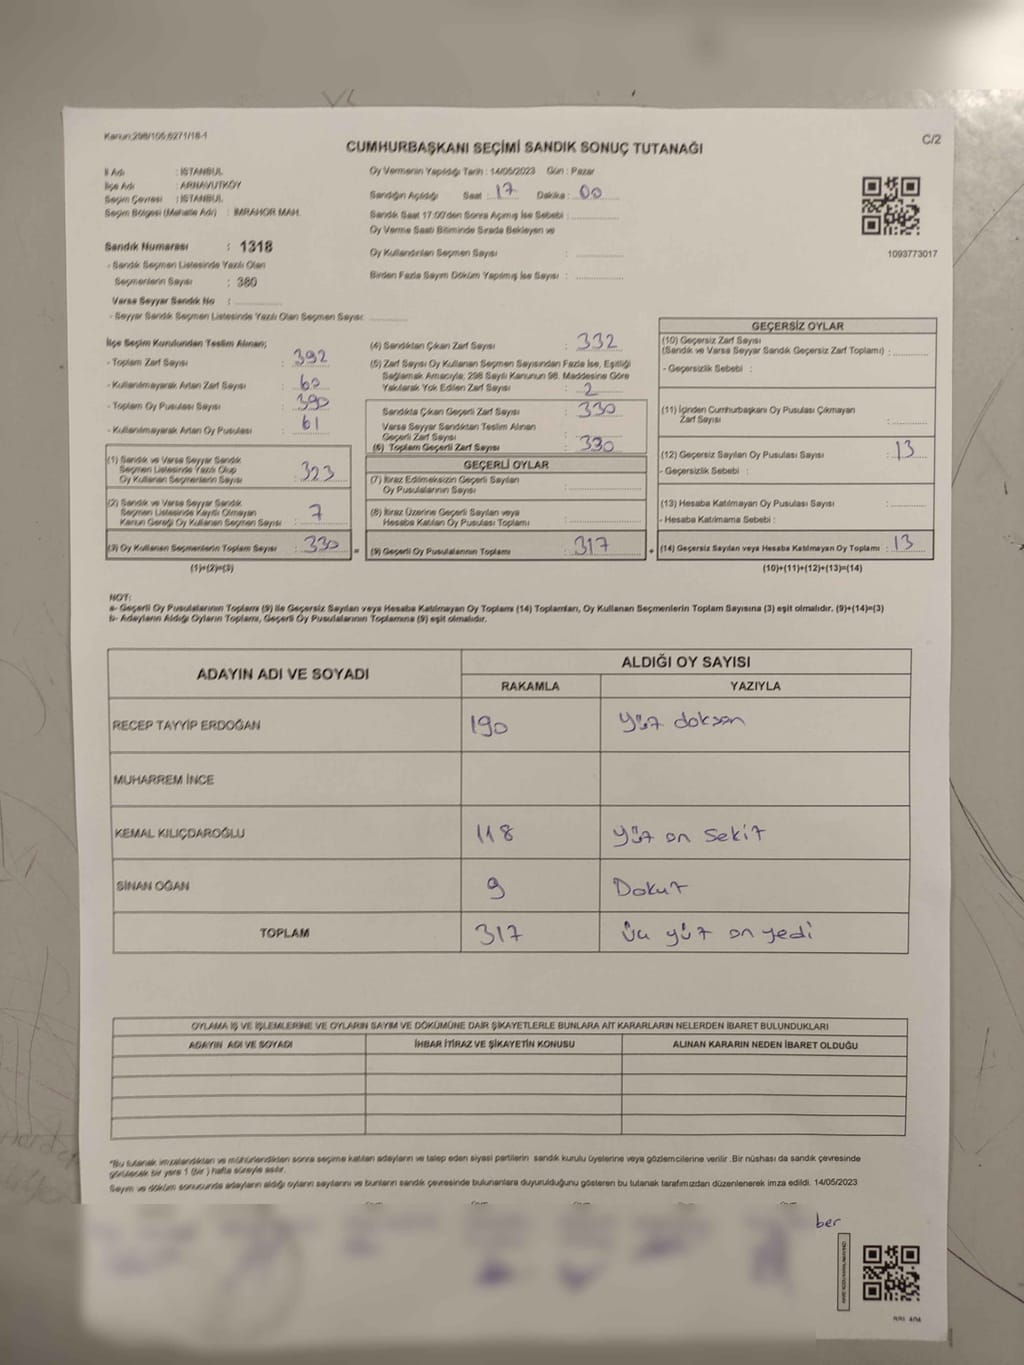 Kanun:298/106;6271/18-1
C/2
CUMHURBAŞKANI SEÇİMİ SANDIK SONUÇ TUTANAĞI
İl Adı : İSTANBUL
İlçe Adı : ARNAVUTKÖY
Seçim Çevresi : İSTANBUL
Seçim Bölgesi (Mahalle Adı) : İMRAHOR MAH.
Oy Vermenin Yapıldığı Tarih : 14/05/2023 Gün : Pazar
Sandığın Açıldığı Saat : 17 Dakika : 00
Sandık Saat 17:00'den Sonra Açımış İse Sebebi :
Oy Verme Saati Bitiminde Sırada Bekleyen ve
Oy Kullandırılan Seçmen Sayısı :
Birden Fazla Sayım Döküm Yapılmış İse Sayısı :
1093773017
Sandık Numarası : 1318
- Sandık Seçmen Listesinde Yazılı Olan
Seçmenlerin Sayısı : 380
Varsa Seyyar Sandık No :
- Seyyar Sandık Seçmen Listesinde Yazılı Olan Seçmen Sayısı:
İlçe Seçim Kurulundan Teslim Alınan;
- Toplam Zarf Sayısı : 392
- Kullanılmayarak Artan Zarf Sayısı : 60
- Toplam Oy Pusulası Sayısı : 390
- Kullanılmayarak Artan Oy Pusulası : 61
(1) Sandık ve Varsa Seyyar Sandık
Seçmen Listesinde Yazılı Olup
Oy Kullanan Seçmenlerin Sayısı : 323
(2) Sandık ve Varsa Seyyar Sandık
Seçmen Listesinde Kayıtlı Olmayan
Kanun Gereği Oy Kullanan Seçmen Sayısı : 7
(3) Oy Kullanan Seçmenlerin Toplam Sayısı : 330
(1)+(2)=(3)
(4) Sandıktan Çıkan Zarf Sayısı : 332
(5) Zarf Sayısı Oy Kullanan Seçmen Sayısından Fazla İse, Eşitliği
Sağlamak Amacıyla; 298 Sayılı Kanunun 98. Maddesine Göre
Yakılarak Yok Edilen Zarf Sayısı : 2
Sandıkta Çıkan Geçerli Zarf Sayısı : 330
Varsa Seyyar Sandıktan Teslim Alınan
Geçerli Zarf Sayısı :
(6) Toplam Geçerli Zarf Sayısı : 330
GEÇERLİ OYLAR
(7) İtiraz Edilmeksizin Geçerli Sayılan
Oy Pusulalarının Sayısı :
(8) İtiraz Üzerine Geçerli Sayılan veya
Hesaba Katılan Oy Pusulası Toplamı :
= (9) Geçerli Oy Pusulalarının Toplamı : 317
GEÇERSİZ OYLAR
(10) Geçersiz Zarf Sayısı
(Sandık ve Varsa Seyyar Sandık Geçersiz Zarf Toplamı) :
- Geçersizlik Sebebi :
(11) İçinden Cumhurbaşkanı Oy Pusulası Çıkmayan
Zarf Sayısı :
(12) Geçersiz Sayılan Oy Pusulası Sayısı : 13
- Geçersizlik Sebebi :
(13) Hesaba Katılmayan Oy Pusulası Sayısı :
- Hesaba Katılmama Sebebi :
+ (14) Geçersiz Sayılan veya Hesaba Katılmayan Oy Toplamı : 13
(10)+(11)+(12)+(13)=(14)
NOT:
a- Geçerli Oy Pusulalarının Toplamı (9) ile Geçersiz Sayılan veya Hesaba Katılmayan Oy Toplamı (14) Toplamları, Oy Kullanan Seçmenlerin Toplam Sayısına (3) eşit olmalıdır. (9)+(14)=(3)
b- Adayların Aldığı Oyların Toplamı, Geçerli Oy Pusulalarının Toplamına (9) eşit olmalıdır.
ADAYIN ADI VE SOYADI ALDIĞI OY SAYISI
RAKAMLA YAZIYLA
RECEP TAYYİP ERDOĞAN 190 Yüz doksan
MUHARREM İNCE
KEMAL KILIÇDAROĞLU 118 Yüz on sekiz
SİNAN OĞAN 9 Dokuz
TOPLAM 317 Üç yüz on yedi
OYLAMA İŞ VE İŞLEMLERİNE VE OYLARIN SAYIM VE DÖKÜMÜNE DAİR ŞİKAYETLERLE BUNLARA AİT KARARLARIN NELERDEN İBARET BULUNDUKLARI
ADAYIN ADI VE SOYADI İHBAR İTİRAZ VE ŞİKAYETİN KONUSU ALINAN KARARIN NEDEN İBARET OLDUĞU
*Bu tutanak imzalandıktan ve mühürlendikten sonra seçime katılan adayların ve talep eden siyasi partilerin sandık kurulu üyelerine veya gözlemcilerine verilir .Bir nüshası da sandık çevresinde
görülecek bir yere 1 (bir ) hafta süreyle asılır.
Sayım ve döküm sonucunda adayların aldığı oyların sayılarını ve bunların sandık çevresinde bulunanlara duyurulduğunu gösteren bu tutanak tarafımızdan düzenlenerek imza edildi. 14/05/2023
ber